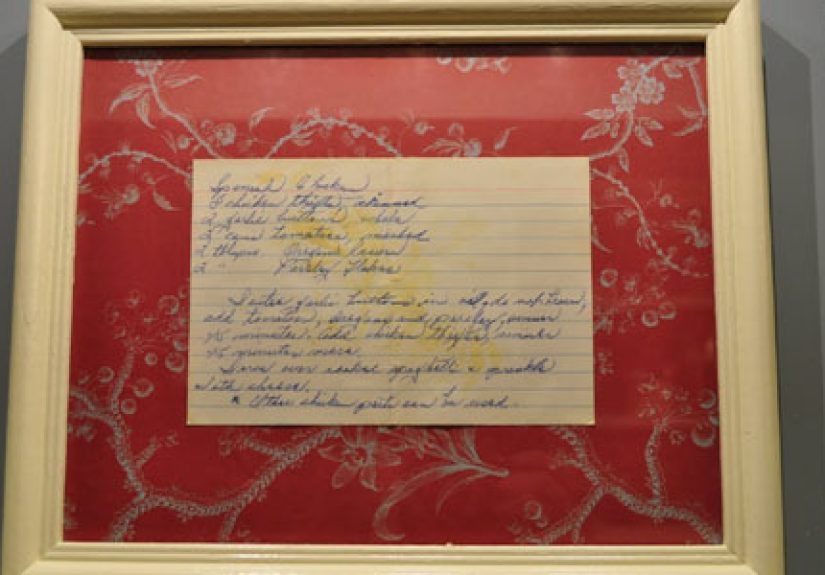 Spanish Chicken
chicken thighs, skinned
2 garlic buttons, whole
2 cans tomatoes, mashed
2 tblspns. Oregano leaves
2 " Parsley Flakes
Sautee garlic buttons in oil, do not brown,
add tomatoes, oregano and parsley, simmer
45 minutes. Add chicken thighs, simmer
45 minutes more.
Serve over cooked spaghetti & sprinkle
with cheese.
* Other chicken parts can be used.